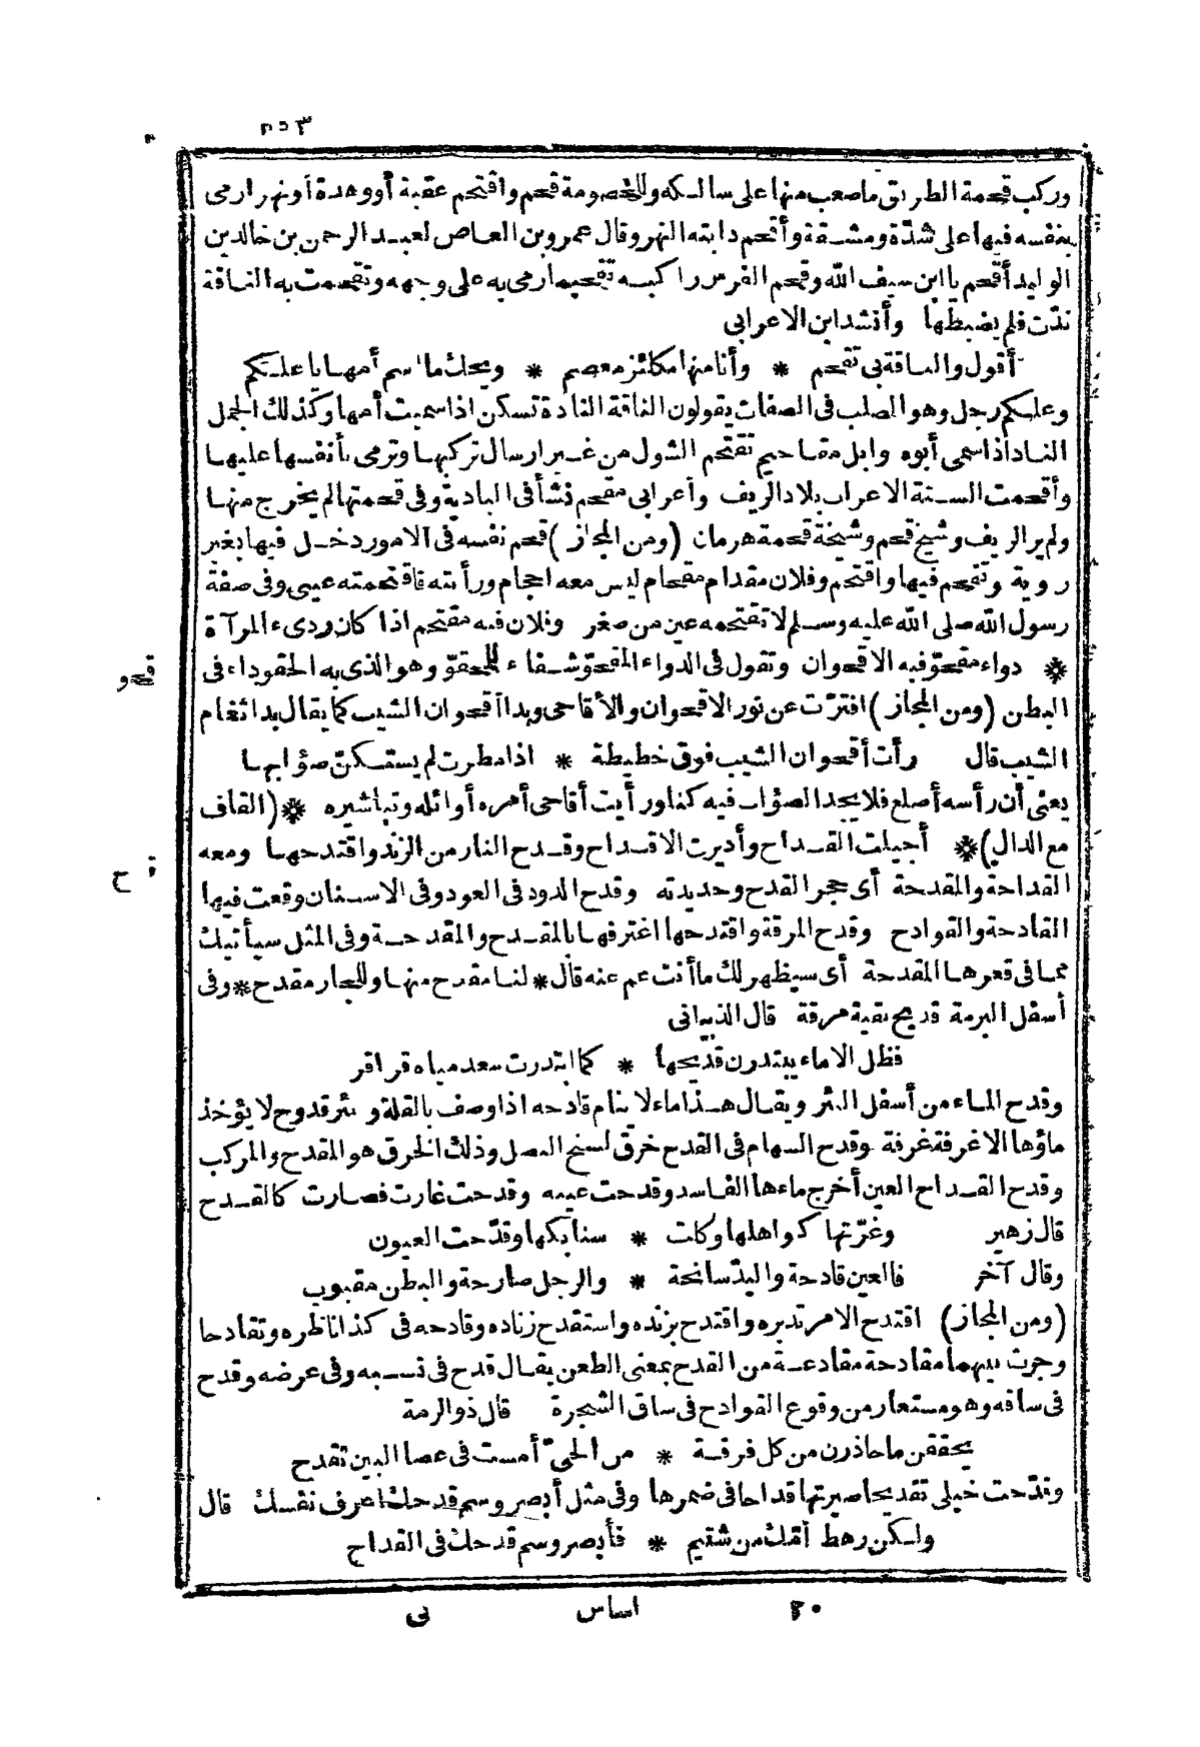 وركب قحمة الطريق ما صعب منها على سالكه وللخصومة قحم واقتحم عقبة أو وهدة أو نهرا رمى
بنفسه فيها على شدّة ومشقة وأقحم دابته النهر وقال عمرو بن العاص لعبد الرحمن بن خالد بن
الوليد أقحم يا ابن سيف الله وقحم الفرس راكبه تقحيما رمى به على وجهه وتقحمت به الناقة
ندّت فلم يضبطها وأنشد ابن الاعرابى
أقول والناقة بى تقحم * وأنا منها مكلئز معصم * ويحك ما اسم أمها يا علكم
وعلكم رجل وهو الصلب فى الصفات يقولون الناقة النادة تسكن اذا سميت أمها وكذلك الجمل
الناد اذا سمى أبوه وابل مقاحيم تقتحم الشول من غير ارسال تركبها وترمى بأنفسها عليها
وأقحمت السنة الاعراب بلاد الريف وأعرابى مقحم نشأ فى البادية وفى قحمتها لم يخرج منها
ولم ير الريف وشيخ قحم وشيخة قحمة هرمان (ومن المجاز) قحم نفسه فى الامور دخل فيها بغير
روية وتقحم فيها واقتحم وفلان مقدام مقحام ليس معه احجام ورأيته فاقتحمته عينى وفى صفة
رسول الله صلى الله عليه وسلم لا تقتحمه عين من صغر وفلان فيه مقتحم اذا كان ردىء المرآة
قحو
* دواء مقحوّ فيه الاقحوان وتقول فى الدواء المقحوّ شفاء للمحقوّ وهو الذى به الحقو داء فى
البطن (ومن المجاز) افترّت عن نور الاقحوان والأقاحى وبدا أقحوان الشيب كما يقال بدا ثغام
الشيب قال رأت أقحوان الشيب فوق خطيطة * اذا مطرت لم يستكنّ صؤابها
يعنى أن رأسه أصلع فلا يجد الصؤاب فيه كنا ورأيت أقاحى أمره أوائله وتباشيره * (القاف
ق د ح
مع الدال) * أجيلت القداح وأديرت الاقداح وقدح النار من الزند واقتدحها ومعه
القداحة والمقدحة أى حجر القدح وحديدته وقدح الدود فى العود وفى الاسنان وقعت فيها
القادحة والقوادح وقدح المرقة واقتدحها اغترفها بالمقدح والمقدحة وفى المثل سيأتيك
بما فى قعرها المقدحة أى سيظهر لك ما أنت عم عنه قال * لنا مقدح منها وللجار مقدح * وفى
أسفل البرمة قديح بقية مرقة قال الذبيانى
فظل الاماء يبتدرن قديحها * كما ابتدرت سعد مياه قراقر
وقدح الماء من أسفل البئر ويقال هذا ماء لا ينام قادحه اذا وصف بالقلة وبئر قدوح لا يؤخذ
ماؤها الا غرفة غرفة وقدح السهام فى القدح خرق لسنخ النصل وذلك الخرق هو المقدح والمركب
وقدح القداح العين أخرج ماءها الفاسد وقدحت عينه وقدحت غارت فصارت كالقدح
قال زهير وغرّتها كواهلها وكلت * سنابكها وقدّحت العيون
وقال آخر فالعين قادحة واليد سانحة * والرجل ضارحة والبطن مقبوب
(ومن المجاز) اقتدح الامر تدبره واقتدح بزنده واستقدح زناده وقادحه فى كذا ناظره وتقادحا
وجرت بينهما مقادحة مقاذعة من القدح بمعنى الطعن يقال قدح فى نسبه وفى عرضه وقدح
فى ساقه وهو مستعار من وقوع القوادح فى ساق الشجرة قال ذو الرمة
يحققن ما حاذرن من كل فرقة * من الحىّ أمست فى عصا البين تقدح
وقدّحت خيلى تقديحا صيرتها قداحا فى ضمرها وفى مثل أبصر وسم قدحك اعرف نفسك قال
ولكن رهط أمّك من شتيم * فأبصر وسم قدحك فى القداح
٢٠ اساس نى